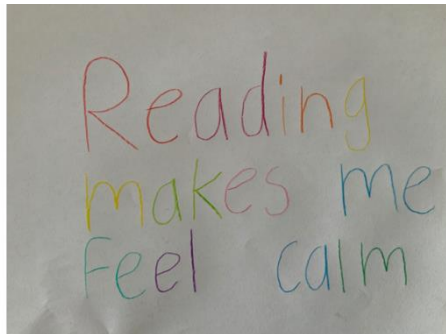 Reading
makes me
feel calm